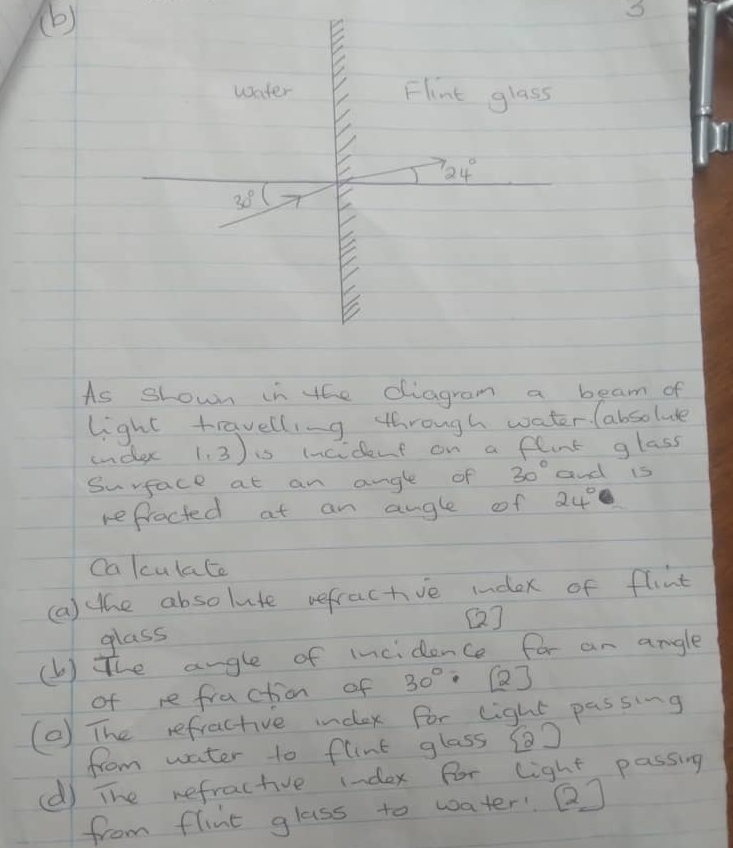 (b)
3
water
Flint glass
24°
30°
As shown in the diagram a beam of
light travelling through water (absolute
index 1.3) is incident on a flint glass
surface at an angle of 30° and is
refracted at an angle of 24°
Calculate
(a) the absolute refractive index of flint
glass [2]
(b) The angle of incidence for an angle
of refraction of 30°. [2]
(c) The refractive index for light passing
from water to flint glass [2]
(d) The refractive index for light passing
from flint glass to water. [2]